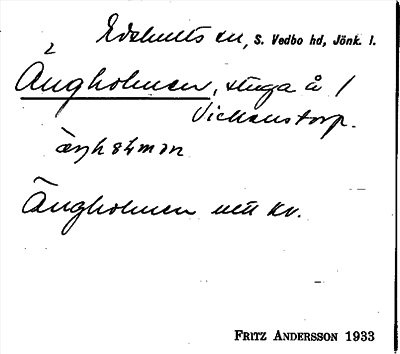 Edshults sn, S. Vedbo hd, Jönk. l.
2
Ängholmen, stuga å 1
Vickenstorp.
Ängholmen utt kv.
FRITZ ANDERSSON 1933